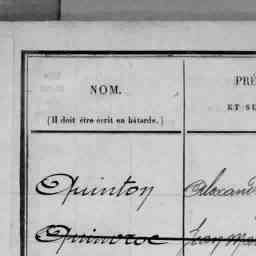 NOM.
(Il doit être écrit en bâtarde.)
PRÉ
ET SU
Quinton
Alexand
Jean Ma